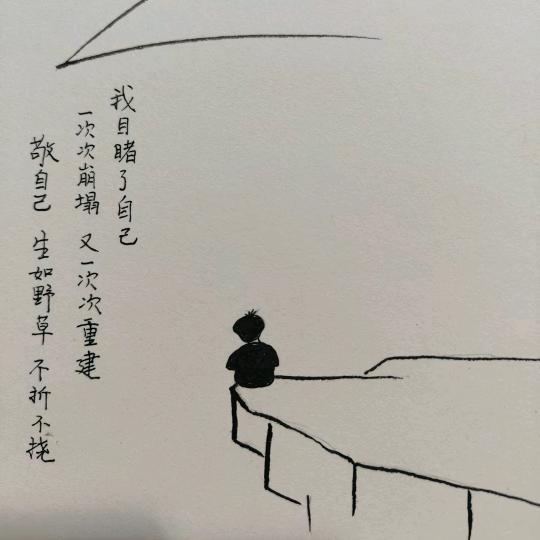 我目睹了自己
一次次崩塌 又一次次重建
敬自己 生如野草 不折不挠